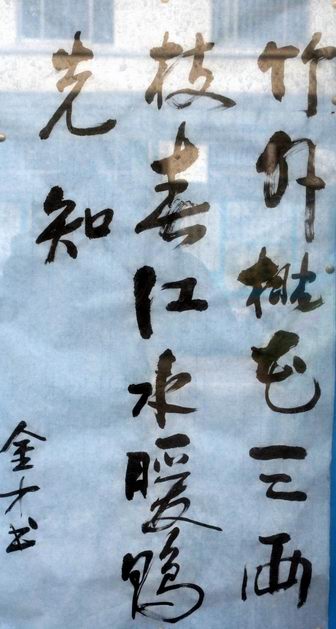 竹外桃花三两
枝春江水暖鸭
先知
金才书